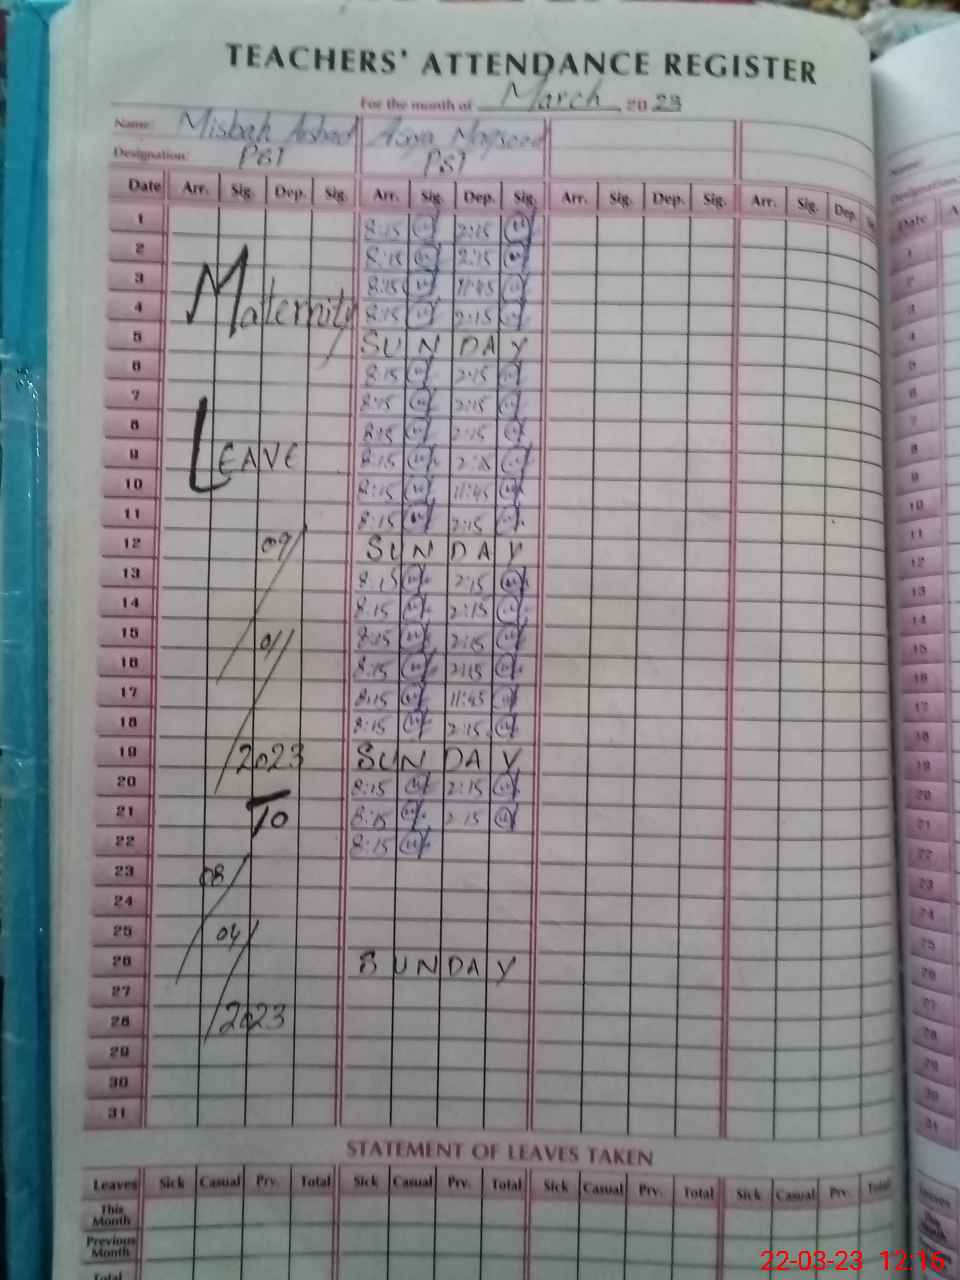 TEACHERS' ATTENDANCE REGISTER
For the month of March 2023
Name: Misbah Arshad Asya Maqsood
Designation: PST PST
Date Arr. Sig. Dep. Sig. Arr. Sig. Dep. Sig. Arr. Sig. Dep. Sig. Arr. Sig. Dep.
1 8:15 2:15
2 8:15 2:15
3 8:15 11:45
4 8:15 2:15
Maternity
5 SUNDAY
6 8:15 2:15
7 8:15 2:15
8 8:15 2:15
9 8:15 2:15
LEAVE
10 8:15 11:45
11 8:15 2:15
12 09/ SUNDAY
13 8:15 2:15
14 8:15 2:15
15 01/ 8:15 2:15
16 8:15 2:15
17 8:15 11:45
18 8:15 2:15
19 2023 SUNDAY
20 8:15 2:15
21 To 8:15 2:15
22 8:15
23 08/
24
25 04/
26 SUNDAY
27
28 2023
29
30
31
STATEMENT OF LEAVES TAKEN
Leaves Sick Casual Prv. Total Sick Casual Prv. Total Sick Casual Prv. Total Sick Casual Prv. Total
This Month
Previous Month
Total
Date
22-03-23 12:15